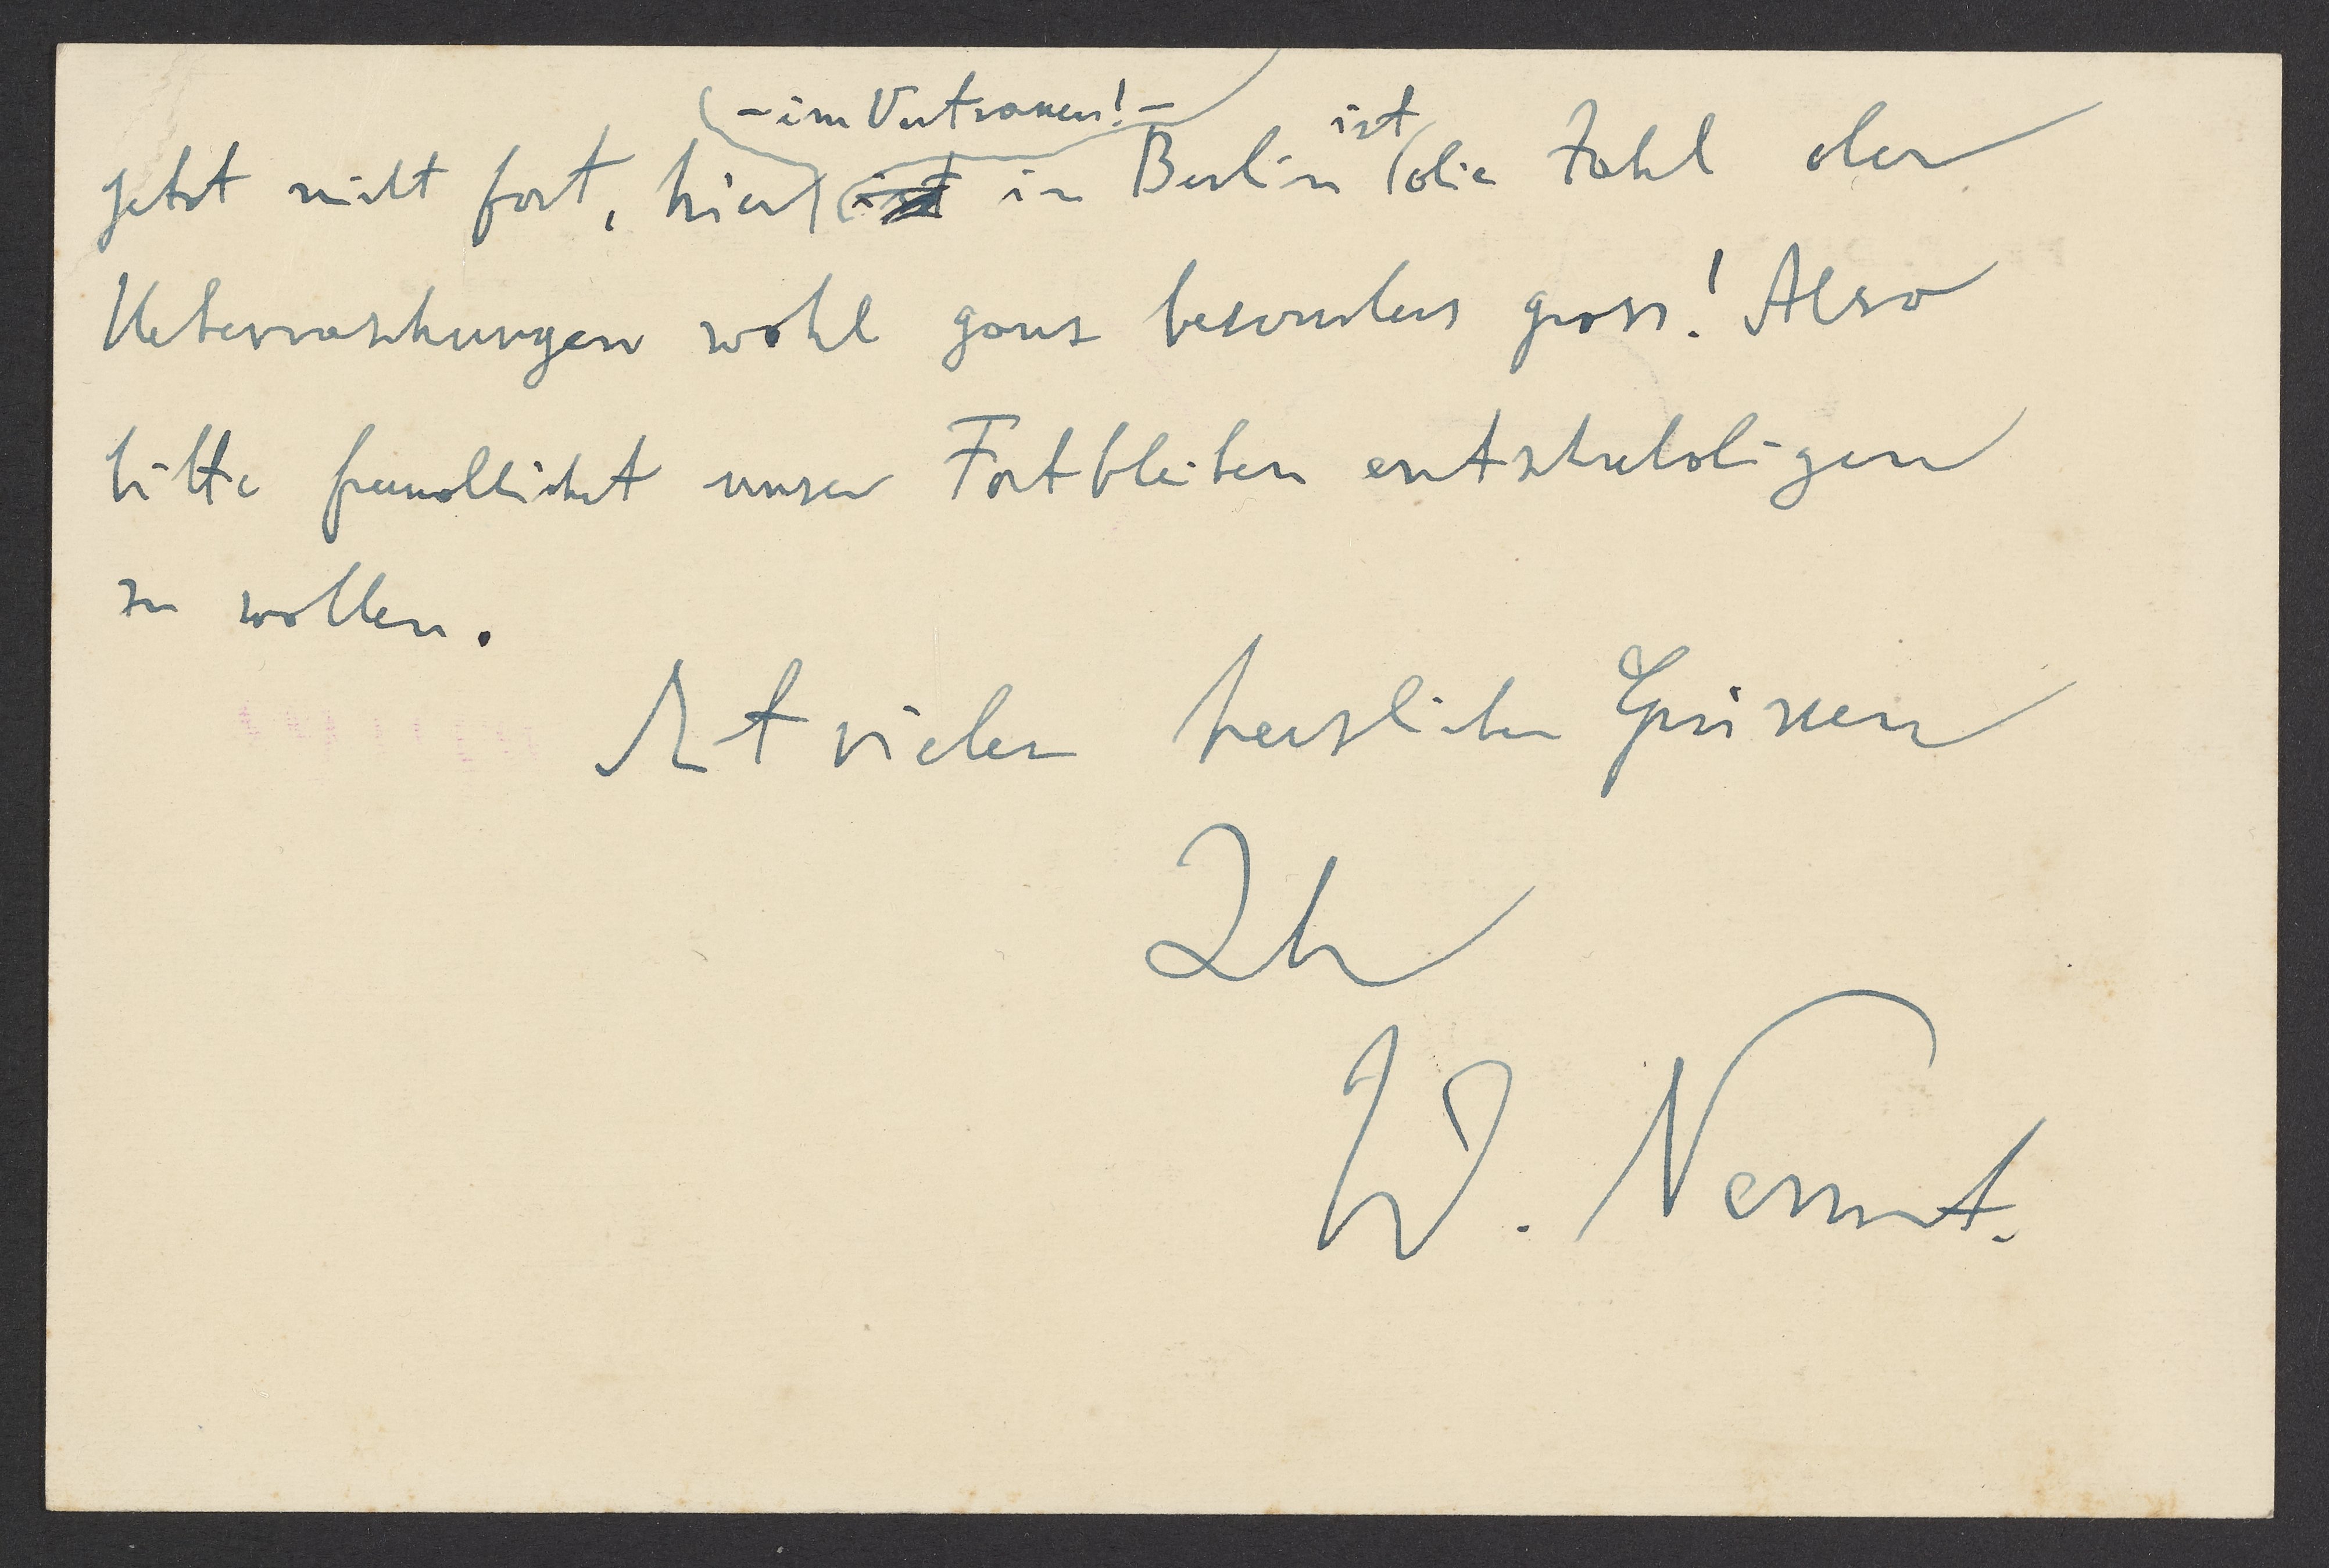 - im Vertrauen! - ist
jetzt nicht fort, hier in Berlin die Zahl der
Ueberraschungen wohl ganz besonders gross! Also
bitte freundlichst unser Fortbleiben entschuldigen
zu wollen.
Mit vielen herzlichen Grüssen
Ihr
W. Nernst.